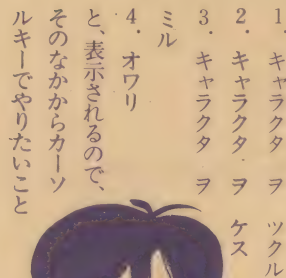 1. キャラクタ ヲ ツクル
2. キャラクタ ヲ ケス
3. キャラクタ ヲ
ミル
4. オワリ
と、表示されるので、
そのなかからカーソ
ルキーでやりたいこと